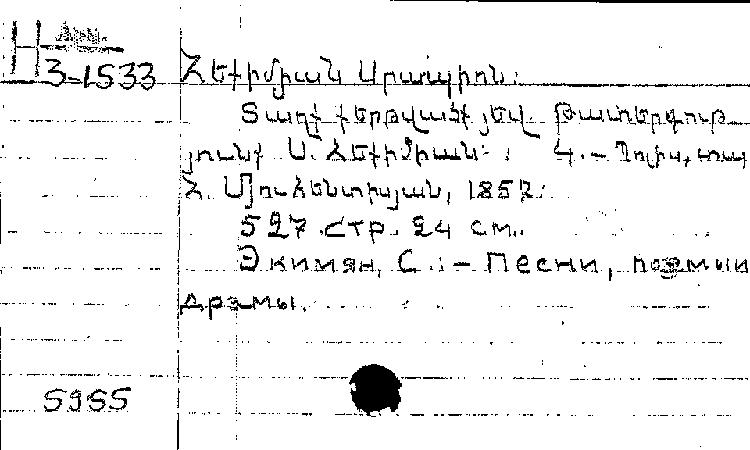 Арм.
H
3-1533 Հեքիմյան Սրապիոն։
Տաղք քերթվածք յեվ թատերգութ
յունք Ս. Հեքիմյան։ Կ.-Պոլիս, տպ
Հ. Մյուհենտիսյան, 1857։
527 стр. 24 см.
Экимян, С. – Песни, поэмы и
драмы.
5955